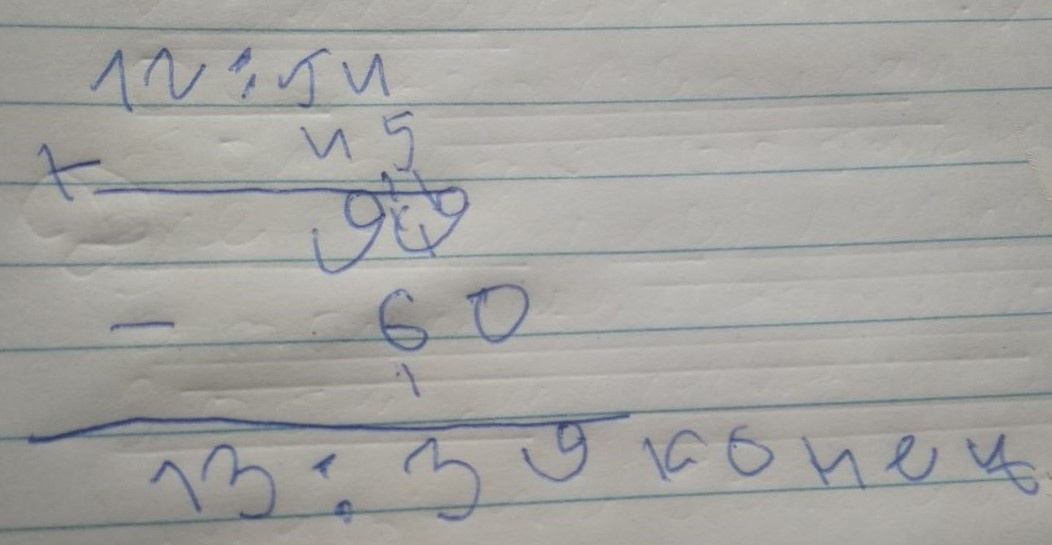 12:54
+ 45
99
- 60
1
13:39 конец